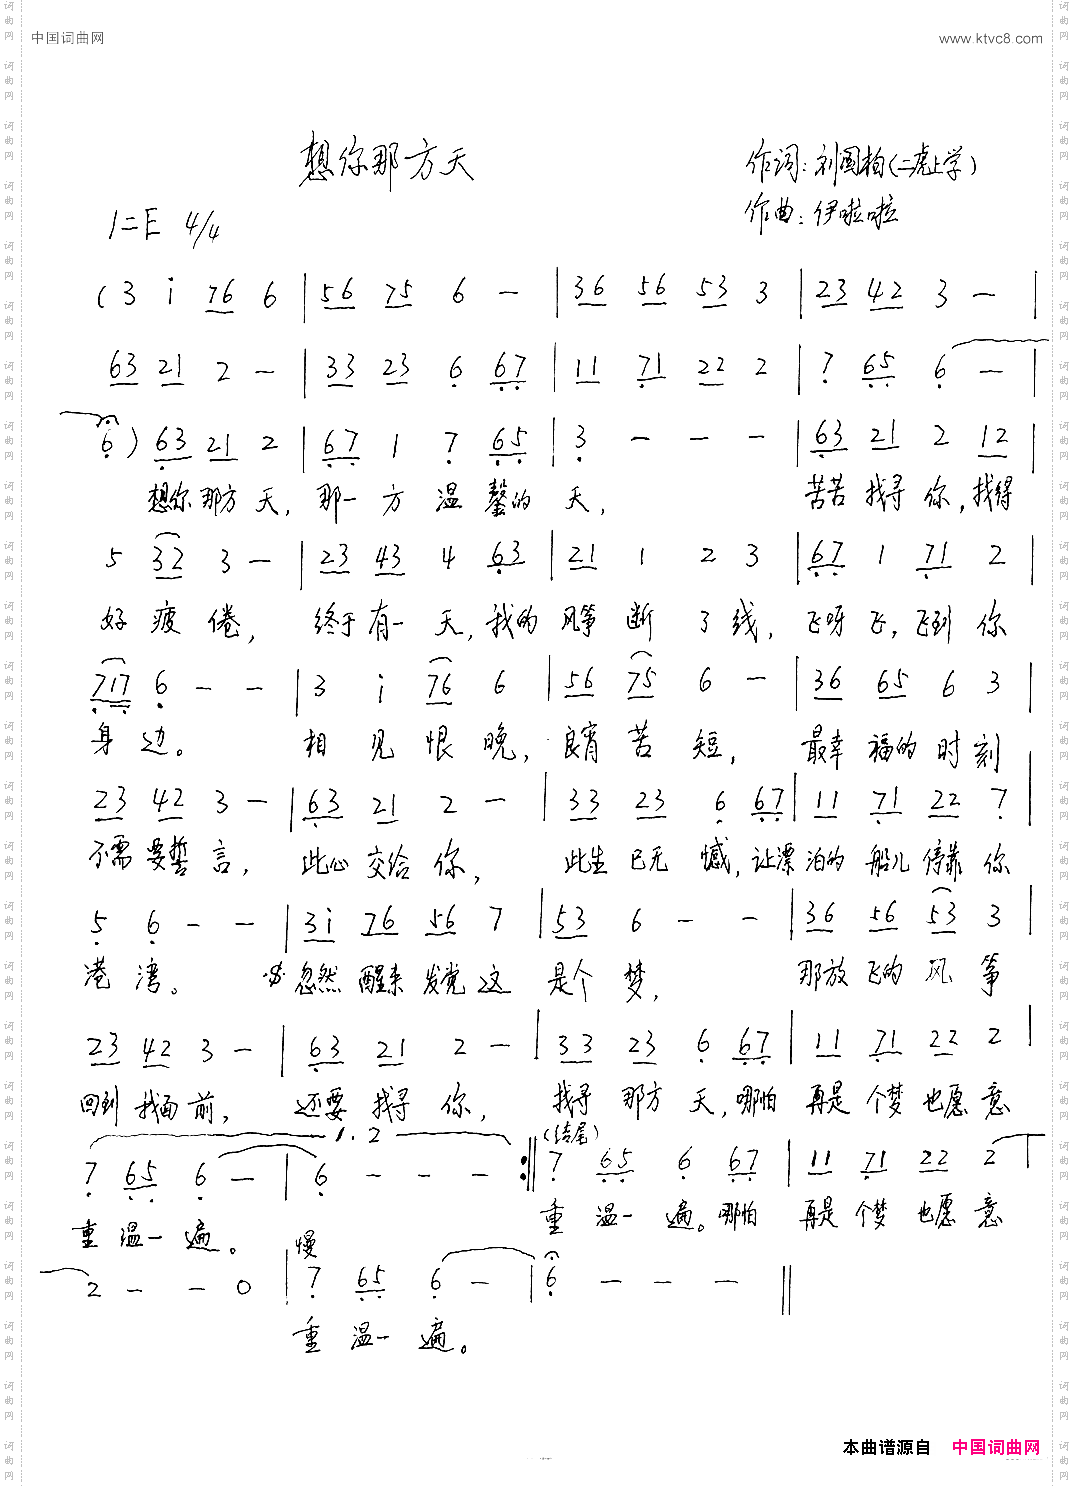 中国词曲网
www.ktvc8.com
想你那方天
作词:刘国柏(二虎上学)
作曲:伊啦啦
1=E 4/4
(3 i 76 6 | 56 75 6 - | 36 56 53 3 | 23 42 3 - |
63 21 2 - | 33 23 6 67 | 11 71 22 2 | 7 65 6 - |
6) 63 21 2 | 67 1 7 65 | 3 - - - | 63 21 2 12 |
想你那方天,那一方温馨的天, 苦苦找寻你,找得
5 32 3 - | 23 43 4 63 | 21 1 2 3 | 67 1 71 2 |
好疲倦, 终于有一天,我的风筝断了线,飞呀飞,飞到你
717 6 - - | 3 i 76 6 | 56 75 6 - | 36 65 6 3 |
身边。 相见恨晚,良宵苦短, 最幸福的时刻
23 42 3 - | 63 21 2 - | 33 23 6 67 | 11 71 22 7 |
不需要誓言, 此心交给你, 此生已无憾,让漂泊的船儿停靠你
5 6 - - | 3i 76 56 7 | 53 6 - - | 36 56 53 3 |
港湾。 忽然醒来发觉这是个梦, 那放飞的风筝
23 42 3 - | 63 21 2 - | 33 23 6 67 | 11 71 22 2 |
回到我面前, 还要找寻你, 找寻那方天,哪怕再是个梦也愿意
1.2 (结尾)
7 65 6 - | 6 - - - :‖ 7 65 6 67 | 11 71 22 2 |
重温一遍。 重温一遍。哪怕再是个梦也愿意
慢
2 - - 0 | 7 65 6 - | 6 - - - ‖
重温一遍。
本曲谱源自 中国词曲网